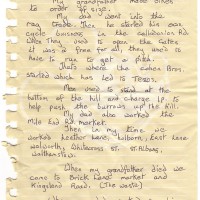 My grandfather made bikes
to order any size.
My dad went into the
rag trade. Then he started his own
cycle business in the caledonian Rd.
When they used to open the cattle
it was a free for all, they used to
have to run to get a pitch.
Thats where the cohen Bros
started which has led to Tesos.
Men used to stand at the
bottom of the hill and charge 1p to
help push the barrows up the hill.
My dad also worked the
Mile End Rd market.
Then in my time we
worked Leather Lane, holborn, East Lane
walworth, Whitecross St, St. Albans,
walthamstow.
When my grandfather died we
came to Brick Lane market and
Kingsland Road. (The waste)